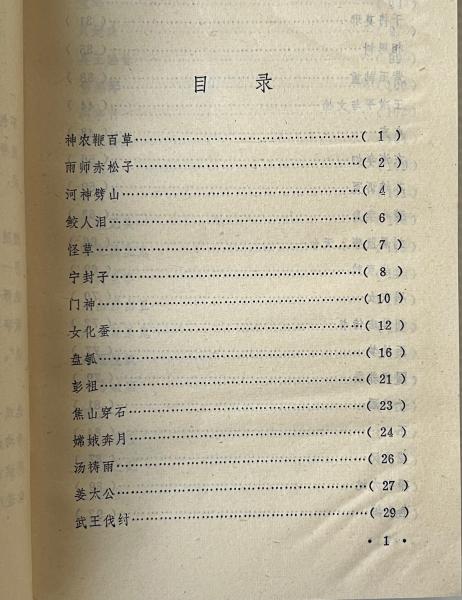 目 录
神农鞭百草……………………………( 1 )
雨师赤松子……………………………( 2 )
河神劈山………………………………( 4 )
鲛人泪…………………………………( 6 )
怪草……………………………………( 7 )
宁封子…………………………………( 8 )
门神……………………………………( 10 )
女化蚕…………………………………( 12 )
盘瓠……………………………………( 16 )
彭祖……………………………………( 21 )
焦山穿石………………………………( 23 )
嫦娥奔月………………………………( 24 )
汤祷雨…………………………………( 26 )
姜太公…………………………………( 27 )
武王伐纣………………………………( 29 )
· 1 ·